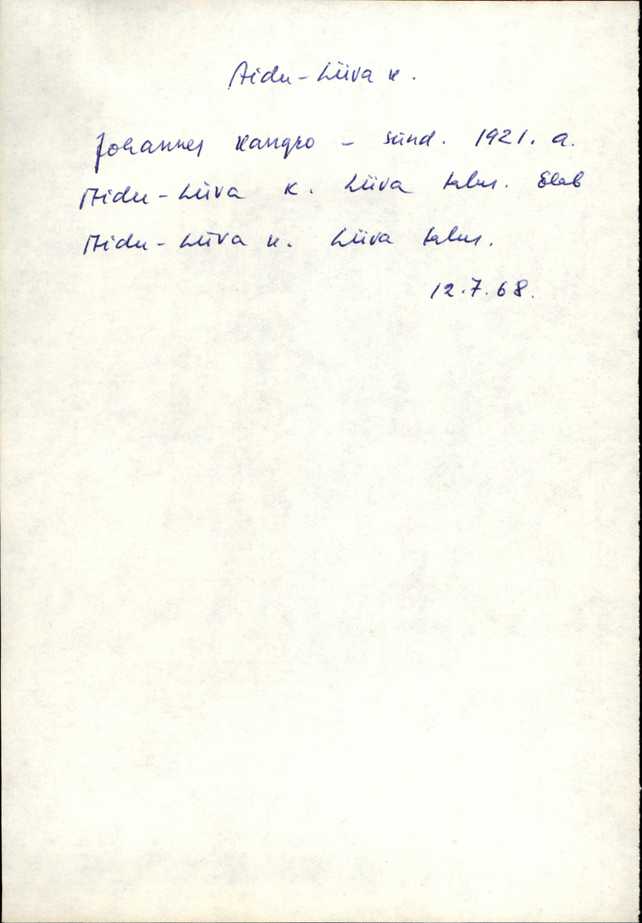 Aidu-Liiva k.
Johannes Kangro – sünd. 1921. a.
Aidu-Liiva k. Liiva talus. Elab
Aidu-Liiva k. Liiva talus.
12.7.68.